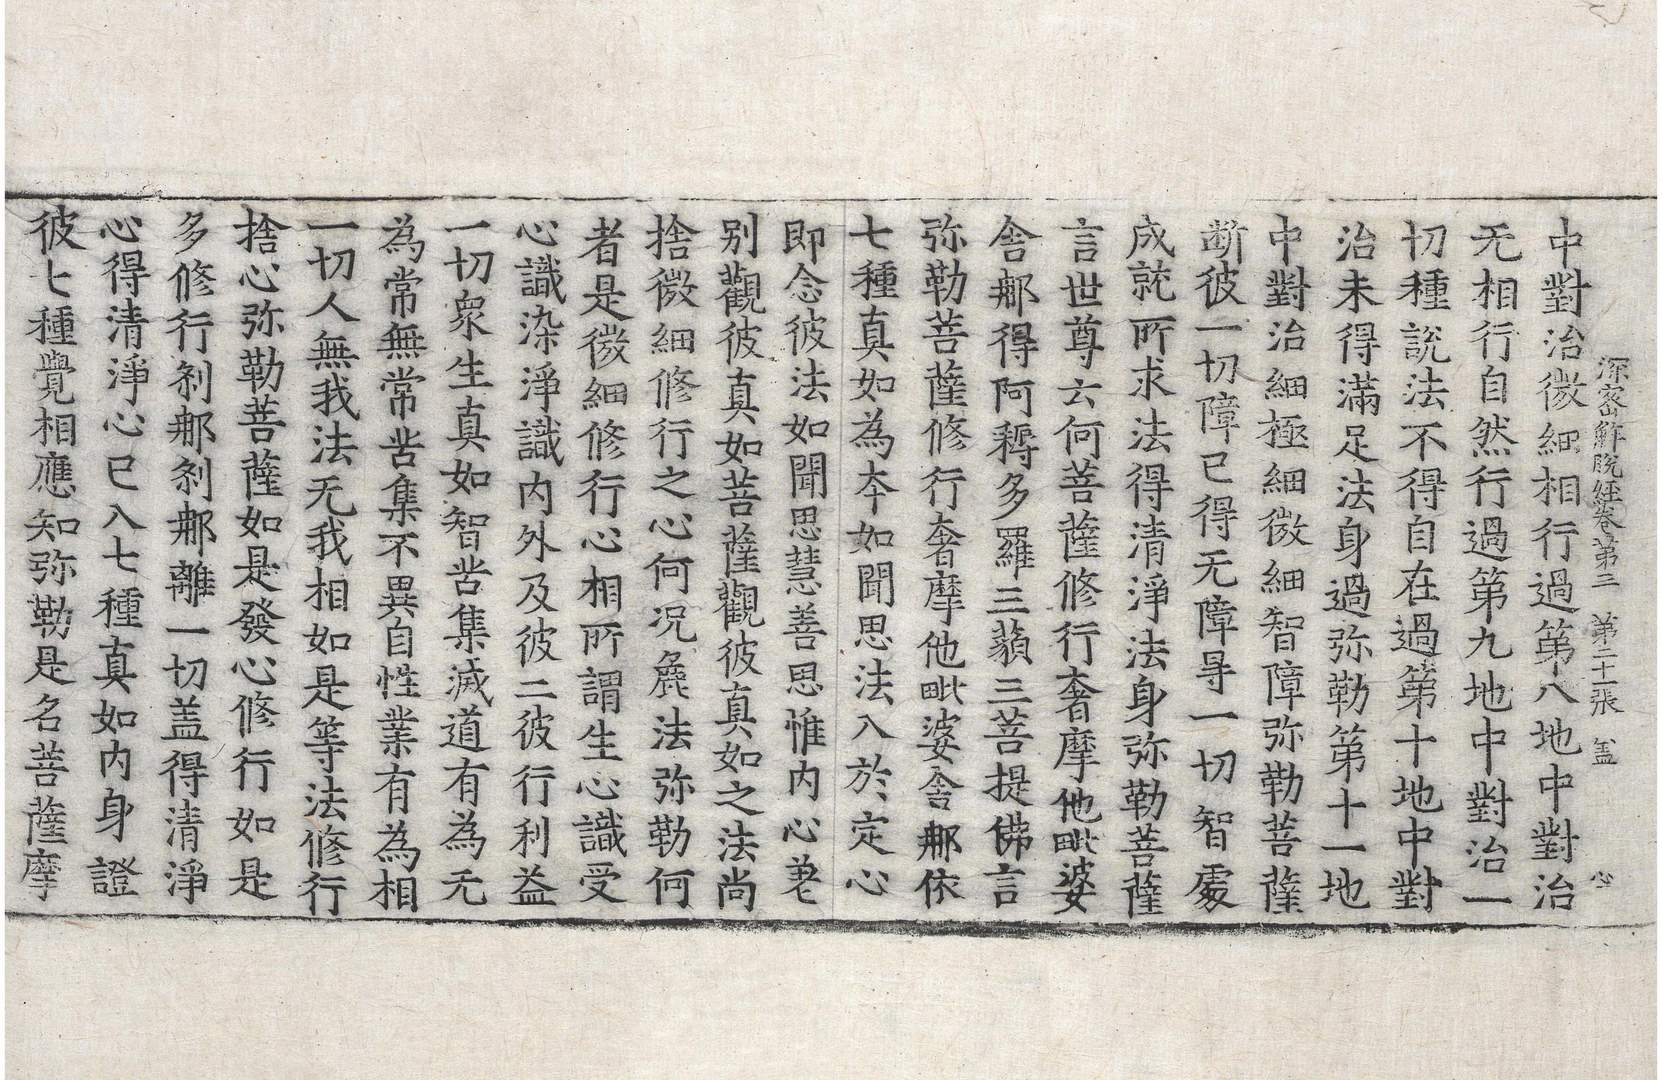 深密解脫經卷第三　第二十一張　盖　心
中對治微細相行過第八地中對治
无相行自然行過第九地中對治一
切種說法不得自在過第十地中對
治未得滿足法身過弥勒第十一地
中對治細極細微細智障弥勒菩薩
断彼一切障已得无障㝵一切智處
成就所求法得清淨法身弥勒菩薩
言世尊云何菩薩修行奢摩他毗婆
舍那得阿耨多羅三藐三菩提佛言
弥勒菩薩修行奢摩他毗婆舍那依
七種真如為本如聞思法入於定心
即念彼法如聞思慧善思惟内心善
別觀彼真如菩薩觀彼真如之法尚
捨微細修行之心何況麁法弥勒何
者是微細修行心相所謂生心識受
心識染淨識内外及彼二彼行利益
一切衆生真如智苦集滅道有為无
為常無常苦集不異自性業有為相
一切人無我法无我相如是等法修行
捨心弥勒菩薩如是發心修行如是
多修行刹那刹那離一切盖得清淨
心得清淨心已入七種真如内身證
彼七種覺相應知弥勒是名菩薩摩